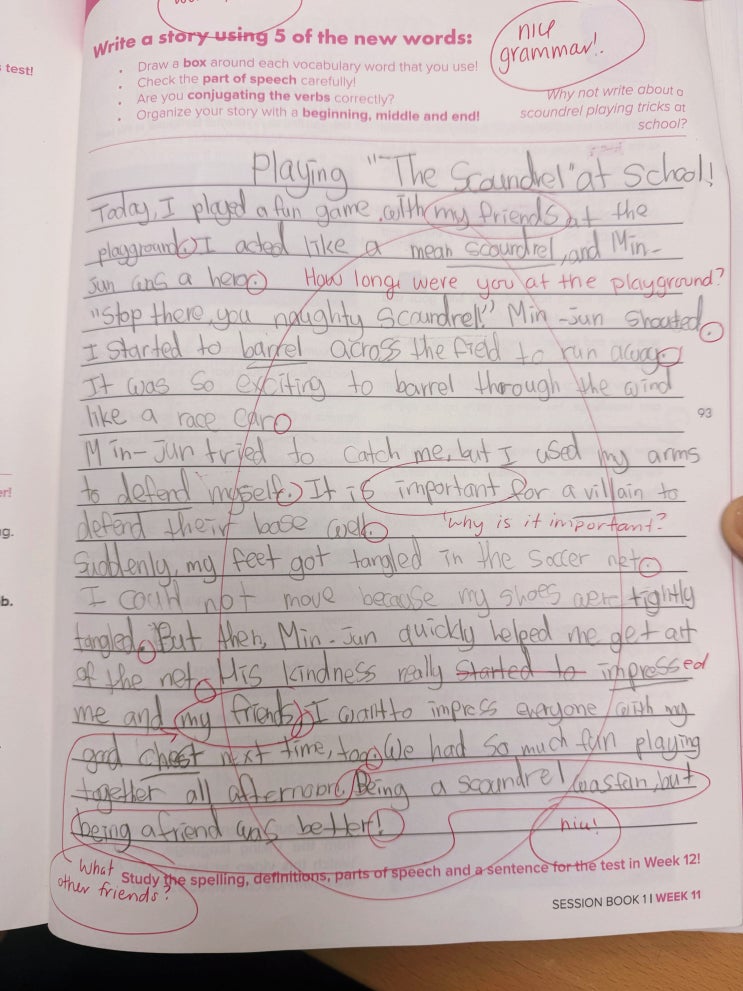 test!
Write a story using 5 of the new words:
nice grammar!
• Draw a box around each vocabulary word that you use!
• Check the part of speech carefully!
• Are you conjugating the verbs correctly?
• Organize your story with a beginning, middle and end!
Why not write about a
scoundrel playing tricks at
school?
Playing "The Scoundrel" at School!
Today, I played a fun game with my friends at the
playground. I acted like a mean scourdrel, and Min-
Jun was a hero. How long were you at the playground?
"Stop there, you naughty Scourdrel!" Min-Jun shouted.
I started to barrel across the field to run away.
It was so exciting to barrel through the wind
like a race car.
93
Min-Jun tried to catch me, but I used my arms
to defend myself. It is important for a villain to
er!
defend their base well. Why is it important?
g.
Suddenly, my feet got tangled in the soccer net.
I could not move because my shoes aer tightly
b.
tangled. But then, Min-Jun quickly helped me get out
of the net. His kindness really started to impressed
me and my friends. I want to impress everyone with my
good chest next time, too. We had so much fun playing
together all afternoon. Being a scoundrel was fun, but
being a friend was better!
nice!
What other friends?
Study the spelling, definitions, parts of speech and a sentence for the test in Week 12!
SESSION BOOK 1 I WEEK 11